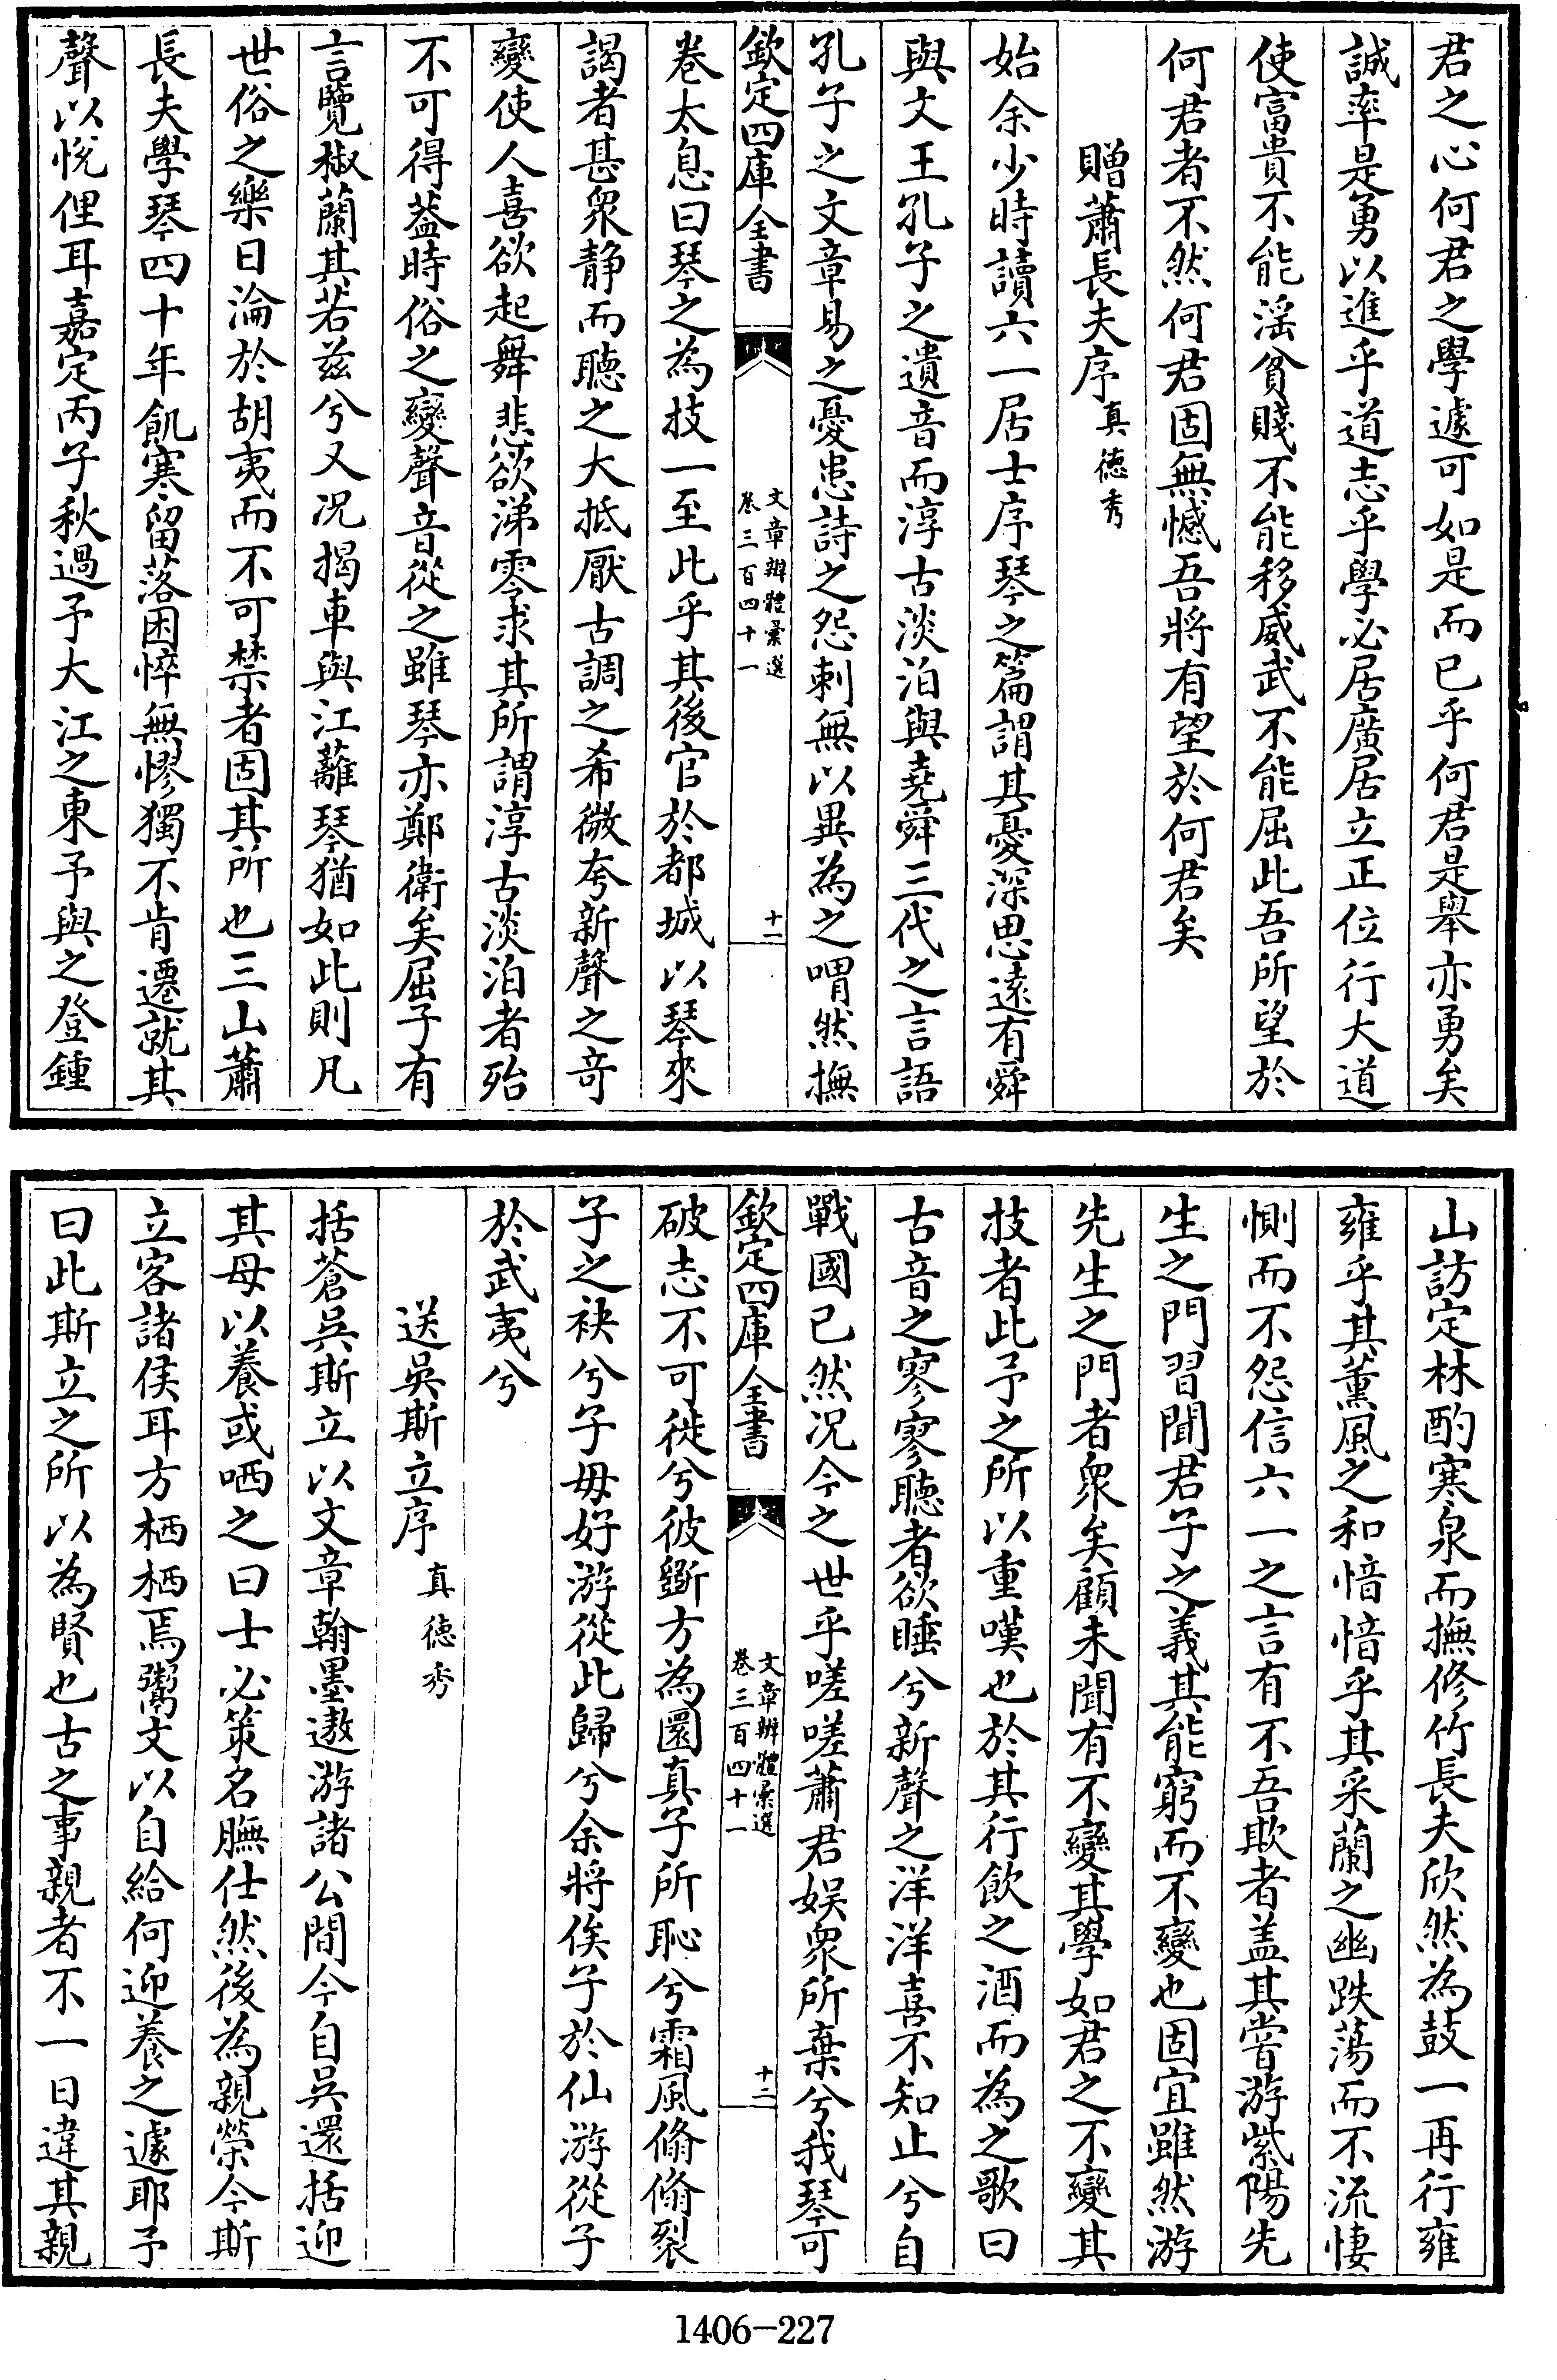 君之心何君之學遽可如是而已乎何君是舉亦勇矣
誠率是勇以進乎道志乎學必居廣居立正位行大道
使富貴不能滛貧賤不能移威武不能屈此吾所望於
何君者不然何君固無憾吾將有望於何君矣
贈蕭長夫序 真德秀
始余少時讀六一居士序琴之篇謂其憂深思遠有舜
與文王孔子之遺音而淳古淡泊與堯舜三代之言語
孔子之文章易之憂患詩之怨刺無以異為之喟然撫
欽定四庫全書
文章辨體彙選
卷三百四十一
十一
卷太息曰琴之為技一至此乎其後官於都城以琴來
謁者甚衆静而聽之大抵厭古調之希微夸新聲之竒
變使人喜欲起舞悲欲涕零求其所謂淳古淡泊者殆
不可得葢時俗之變聲音從之雖琴亦鄭衛矣屈子有
言覽椒蘭其若兹兮又况揭車與江蘺琴猶如此則凡
世俗之樂日淪於胡夷而不可禁者固其所也三山蕭
長夫學琴四十年飢寒留落困悴無憀獨不肯遷就其
聲以悅俚耳嘉定丙子秋過予大江之東予與之登鍾
山訪定林酌寒泉而撫修竹長夫欣然為鼓一再行雍
雍乎其薰風之和愔愔乎其采蘭之幽跌蕩而不流悽
惻而不怨信六一之言有不吾欺者盖其嘗游紫陽先
生之門習聞君子之義其能窮而不變也固宜雖然游
先生之門者衆矣顧未聞有不變其學如君之不變其
技者此予之所以重嘆也於其行飲之酒而為之歌曰
古音之寥寥聽者欲睡兮新聲之洋洋喜不知止兮自
戰國已然况今之世乎嗟嗟蕭君娛衆所棄兮我琴可
欽定四庫全書
文章辨體彙選
卷三百四十一
十二
破志不可徙兮彼斵方為圜真子所恥兮霜風翛翛裂
子之袂兮子毋好游從此歸兮余將俟子於仙游從子
於武夷兮
送吳斯立序 真德秀
括蒼吳斯立以文章翰墨遨游諸公間今自吳還括迎
其母以養或哂之曰士必策名膴仕然後為親榮今斯
立客諸侯耳方栖栖焉鬻文以自給何迎養之遽耶予
曰此斯立之所以為賢也古之事親者不一日違其親
1406-227